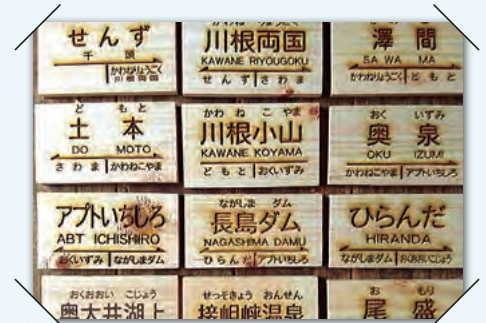 せんず
千頭
かわねりょうごく
川根両国
川根両国
KAWANE RIYOUGOKU
せんず さわま
澤間
SA WA MA
かわねりょうごく ともと
どもと
土本
DO MOTO
さわま かわねこやま
かわねこやま
川根小山
KAWANE KOYAMA
ともと おくいずみ
おくいずみ
奥泉
OKU IZUMI
かわねこやま アプトいちしろ
アプトいちしろ
ABT ICHISHIRO
おくいずみ ながしまダム
ながしまダム
長島ダム
NAGASHIMA DAMU
ひらんだ アプトいちしろ
ひらんだ
HIRANDA
ながしまダム おくおおいこじょう
おくおおいこじょう
奥大井湖上
せっそきょうおんせん
接岨峡温泉
おもり
尾盛